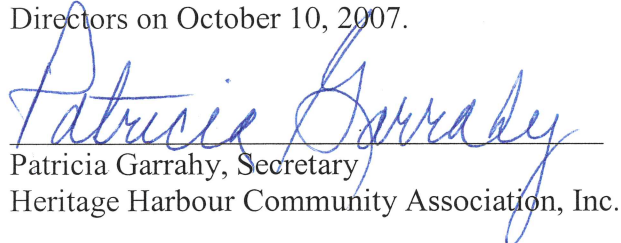 Directors on October 10, 2007.
Patricia Garrahy
Patricia Garrahy, Secretary
Heritage Harbour Community Association, Inc.